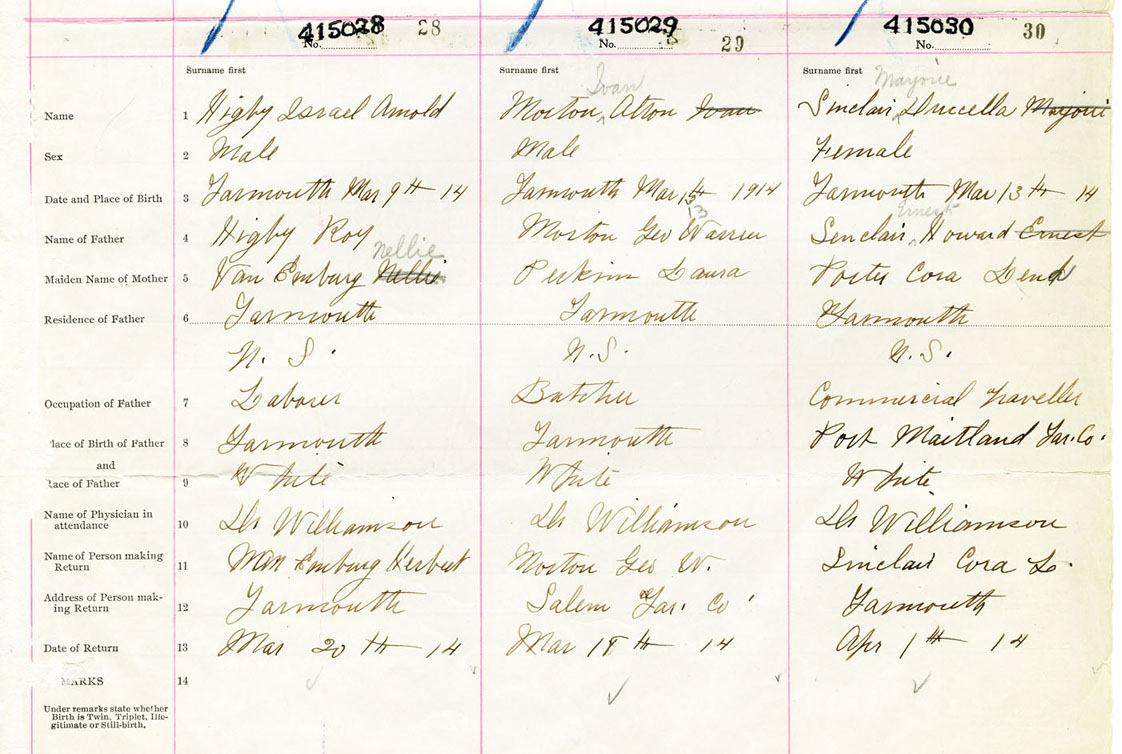 415028 28 415029 29 415030 30
No. No. No.
Surname first Surname first Surname first
Ivan Marjorie
Name 1 Higby Israel Arnold Morton, Alton Ivan Sinclair, Drucella Marjorie
Sex 2 Male Male Female
Date and Place of Birth 3 Yarmouth Mar 9th 14 Yarmouth Mar 15th 1914 Yarmouth Mar 13th 14
13 Ernest
Name of Father 4 Higby Roy Morton Geo Warren Sinclair, Howard Ernest
Nellie
Maiden Name of Mother 5 Van Emburg Nellie Perkins Laura Porter Cora
Residence of Father 6 Yarmouth Yarmouth Yarmouth
N. S. N. S. N. S.
Occupation of Father 7 Laborer Butcher Commercial Traveller
lace of Birth of Father 8 Yarmouth Yarmouth Port Maitland Yar. Co.
and
ace of Father 9 White White White
Name of Physician in attendance 10 Dr Williamson Dr Williamson Dr Williamson
Name of Person making Return 11 Van Emburg Herbert Morton Geo W. Sinclair Cora L.
Address of Person mak-ing Return 12 Yarmouth Salem Yar. Co. Yarmouth
Date of Return 13 Mar 20th 14 Mar 18th 14 Apr 1th 14
MARKS 14
Under remarks state whether
Birth is Twin, Triplet, Ille-
gitimate or Still-birth.